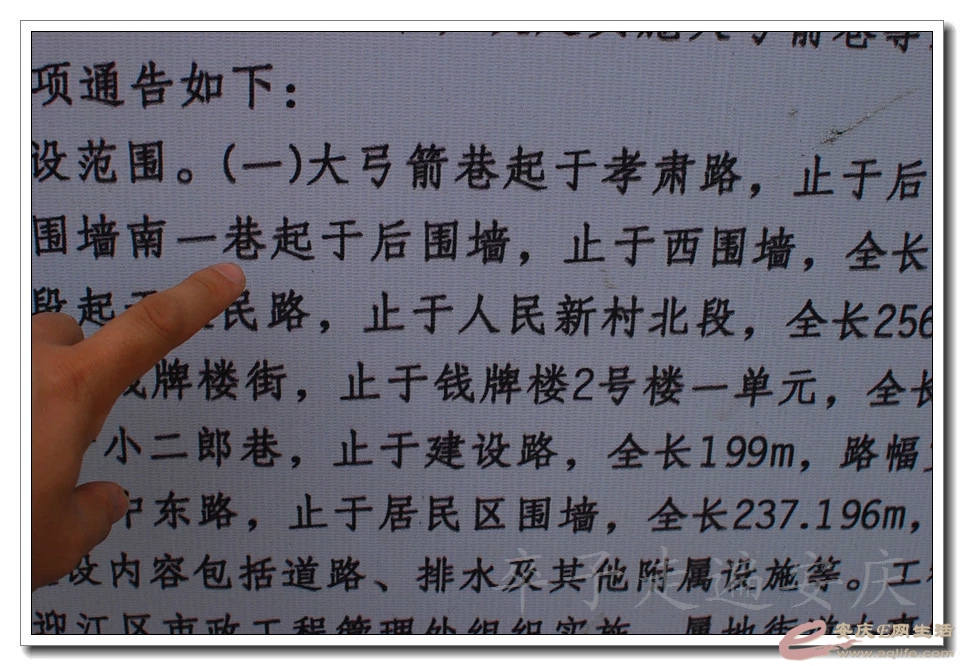 箭巷等
项通告如下：
设范围。(一)大弓箭巷起于孝肃路，止于后
围墙南一巷起于后围墙，止于西围墙，全长
段起 民路，止于人民新村北段，全长256
钱牌楼街，止于钱牌楼2号楼一单元，全长
小二郎巷，止于建设路，全长199m，路幅
中东路，止于居民区围墙，全长237.196m，
设内容包括道路、排水及其他附属设施等。工
迎江区市政工程管理处组织实施，属地街
卒子走遍安庆
安庆E网生活
www.aqlife.com